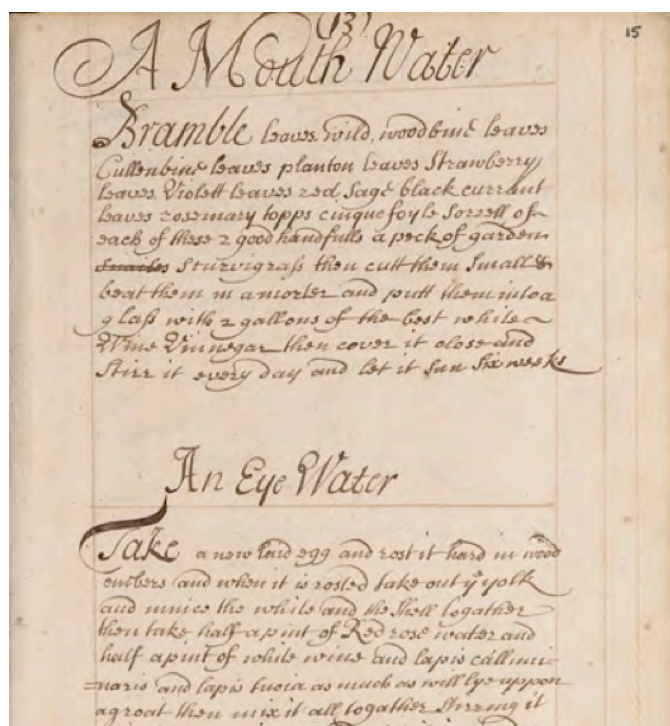 (13)
15
A Mouth Water
Bramble leaves wild, woodbine leaves
Cullenbine leaves planton leaves Strawberry
leaves Violett leaves red Sage black currant
leaves rosemary topps cinquefoyle Sorrell of
each of these 2 good handfulls a peck of garden
Snailes Sturvigrass then cutt them Small &
beat them in a morter and putt them into a
glass with 2 gallons of the best white
Wine Vinnegar then cover it close and
Stirr it every day and let it Sun Six weeks
An Eye Water
Take a new laid egg and rost it hard in wood
embers and when it is rosted take out ye yolk
and mince the white and the Shell togather
then take half a pint of Red rose water and
half a pint of white wine and lapis callimi-
=naris and lapis tucia as much as will lye uppon
a groat then mix it all togather Stirring it